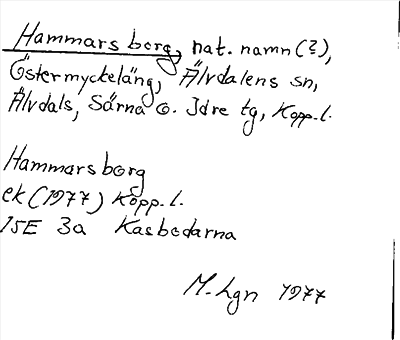 Hammarsborg, nat. namn (?),
Östermyckeläng, Älvdalens sn,
Älvdals, Särna o. Idre tg, Kopp. l.
Hammarsborg
ek (1977) Kopp. l.
15E 3a Kasbodarna
M. Lgn 1977